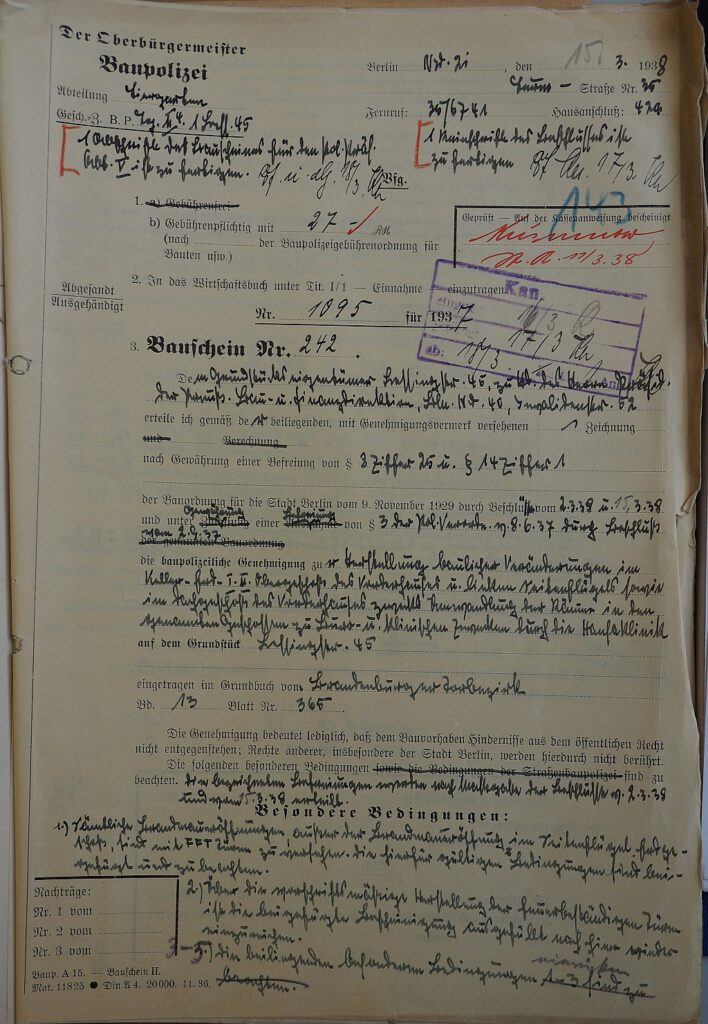 Der Oberbürgermeister
Baupolizei
Abteilung Tiergarten
Berlin Nd. 21, den 15. 3. 1938
Straße Nr. 35
Gesch.-Z. B. P. Tg. 1 Less. 45
Fernruf: 35/6741 Hausanschluß: 424
1 Abschrift des Bauscheines für den Pol. Präs.
Abt. V ist zu fertigen.
1 Reinschrift des Beschlusses ist
zu fertigen 17/3.
Vfg.
143
1. a) Gebührenfrei
b) Gebührenpflichtig mit 27 RM
(nach der Baupolizeigebührenordnung für
Bauten usw.)
Geprüft – Auf der Kassenanweisung bescheinigt
11/3.38
Abgesandt
Ausgehändigt
2. In das Wirtschaftsbuch unter Tit. I/1 — Einnahme — einzutragen
Nr. 1095 für 1937
Kan
17/3
ab: 17/3
3. Bauschein Nr. 242.
Dem Grundstückseigentümer Lessingstr. 45, zu Hd. des Herrn Präsid.
der Preuß. Bau- u. Finanzdirektion, Bln. Nd. 40, Invalidenstr. 52
erteile ich gemäß der beiliegenden, mit Genehmigungsvermerk versehenen 1 Zeichnung
und Berechnung
nach Gewährung einer Befreiung von § 8 Ziffer 25 u. § 14 Ziffer 1
der Bauordnung für die Stadt Berlin vom 9. November 1929 durch Beschlüsse vom 2.3.38 u. 15.3.38
und unter einer Befreiung von § 3 der Pol. Verordn. v. 8.6.37 durch Beschluß
vom
der genannten Bauordnung
die baupolizeiliche Genehmigung zur Herstellung baulicher Veränderungen im
Keller- Erd- I. II. Obergeschoß des Vorderhauses u. linken Seitenflügels sowie
im Dachgeschoß des Vorderhauses zwecks Umwandlung der Räume in den
genannten Geschossen zu Büro- u. klinischen Zwecken durch die Hansaklinik
auf dem Grundstück Lessingstr. 45
eingetragen im Grundbuch vom Brandenburgertorbezirk
Bd. 13 Blatt Nr. 365
Die Genehmigung bedeutet lediglich, daß dem Bauvorhaben Hindernisse aus dem öffentlichen Recht
nicht entgegenstehen; Rechte anderer, insbesondere der Stadt Berlin, werden hierdurch nicht berührt.
Die folgenden besonderen Bedingungen sowie die Bedingungen der Straßenbaupolizei sind zu
beachten. Die bezeichneten Befreiungen werden nach Maßgabe der Beschlüsse v. 2.3.38
und vom 15.3.38 erteilt.
Besondere Bedingungen:
1.) Sämtliche Brandmaueröffnungen außer der Brandmaueröffnung im Seitenflügel Erdge-
schoß, sind mit Türen zu versehen. Die hierfür gültigen Bedingungen sind bei-
gefügt und zu beachten.
2.) Über die vorschriftsmäßige Herstellung der feuerbeständigen Türen
ist die beigefügte Bescheinigung ausgefüllt nach hier wieder-
einzureichen.
3–5.) Die beiliegenden besonderen Bedingungen 1–3 sind zu
beachten.
Nachträge:
Nr. 1 vom
Nr. 2 vom
Nr. 3 vom
Baup. A 15. — Bauschein II.
Mat. 11825 ● Din A 4. 20000. 11. 36.